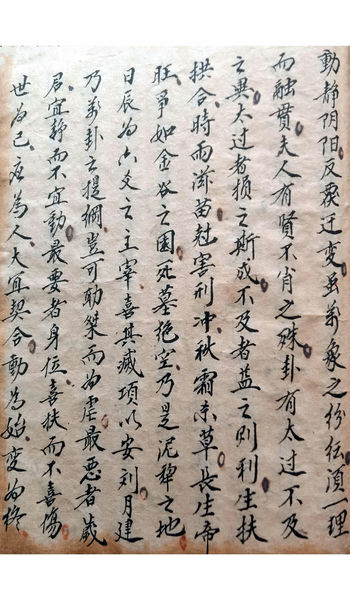 動静阴阳反覆迁变虽萬象之纷纭須一理
而融貫夫人有賢不肖之殊卦有太过不及
之異太过者損之斯成不及者益之則利生扶
拱合時雨滋苗尅害刑冲秋霜杀草長生帝
旺爭如金谷之園死墓绝空乃是泥犂之地
日辰为六爻之主宰喜其滅項以安刘月建
乃萬卦之提綱豈可助桀而为虐最悪者歲
君宜静而不宜動最要者身位喜扶而不喜傷
世为己应為人大宜契合動為始变为終